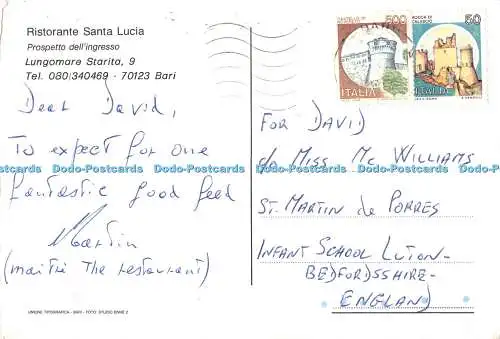 Ristorante Santa Lucia
Prospetto dell'ingresso
Lungomare Starita, 9
Tel. 080/340469 - 70123 Bari
Dear David,
To expect for one
fantastic good feed
Martin
(maitre The restaurant)
UNIONE TIPOGRAFICA - BARI - FOTO: STUDIO ERRE 2
500
ITALIA
ROCCA DI
CALASCIO
50
ITALIA
FOR DAVID
c/o MISS MC WILLIAMS
ST. MARTIN de PORRES
INFANT SCHOOL LUTON-
BEDFORDSSHIRE-
ENGLAND
Dodo-Postcards Dodo-Postcards Dodo-Postcards Dodo-Postcards